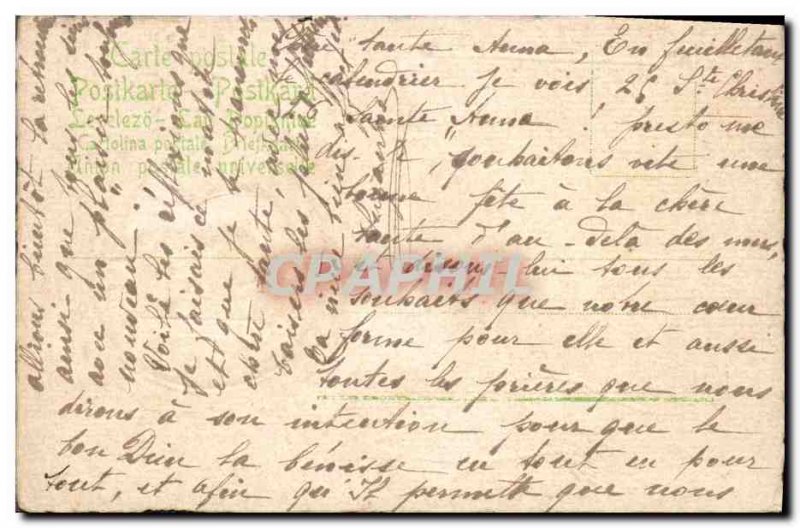 Carte postale
Postkarte - Postkard
Levelező-Lap
Cartolina postale
Union postale universelle
tante Anna, En feuilletant
calendrier je vois 26 Ste Christine
Sainte Anna ! presto me
dis-je, souhaitons vite une
bonne fête à la chère
tante d'au-delà des mers,
et disons-lui tous les
souhaits que notre cœur
forme pour elle et aussi
toutes les prières que nous
dirons à son intention pour que le
bon Dieu la bénisse en tout et pour
tout, et afin qu'Il permette que nous
allions bientôt la
ainsi que tous les
avec un plaisir
nouveau !
Voilà les réflexions que
je faisais ce
et que je
chère tante, avec
baisers les plus
CPAPHIL